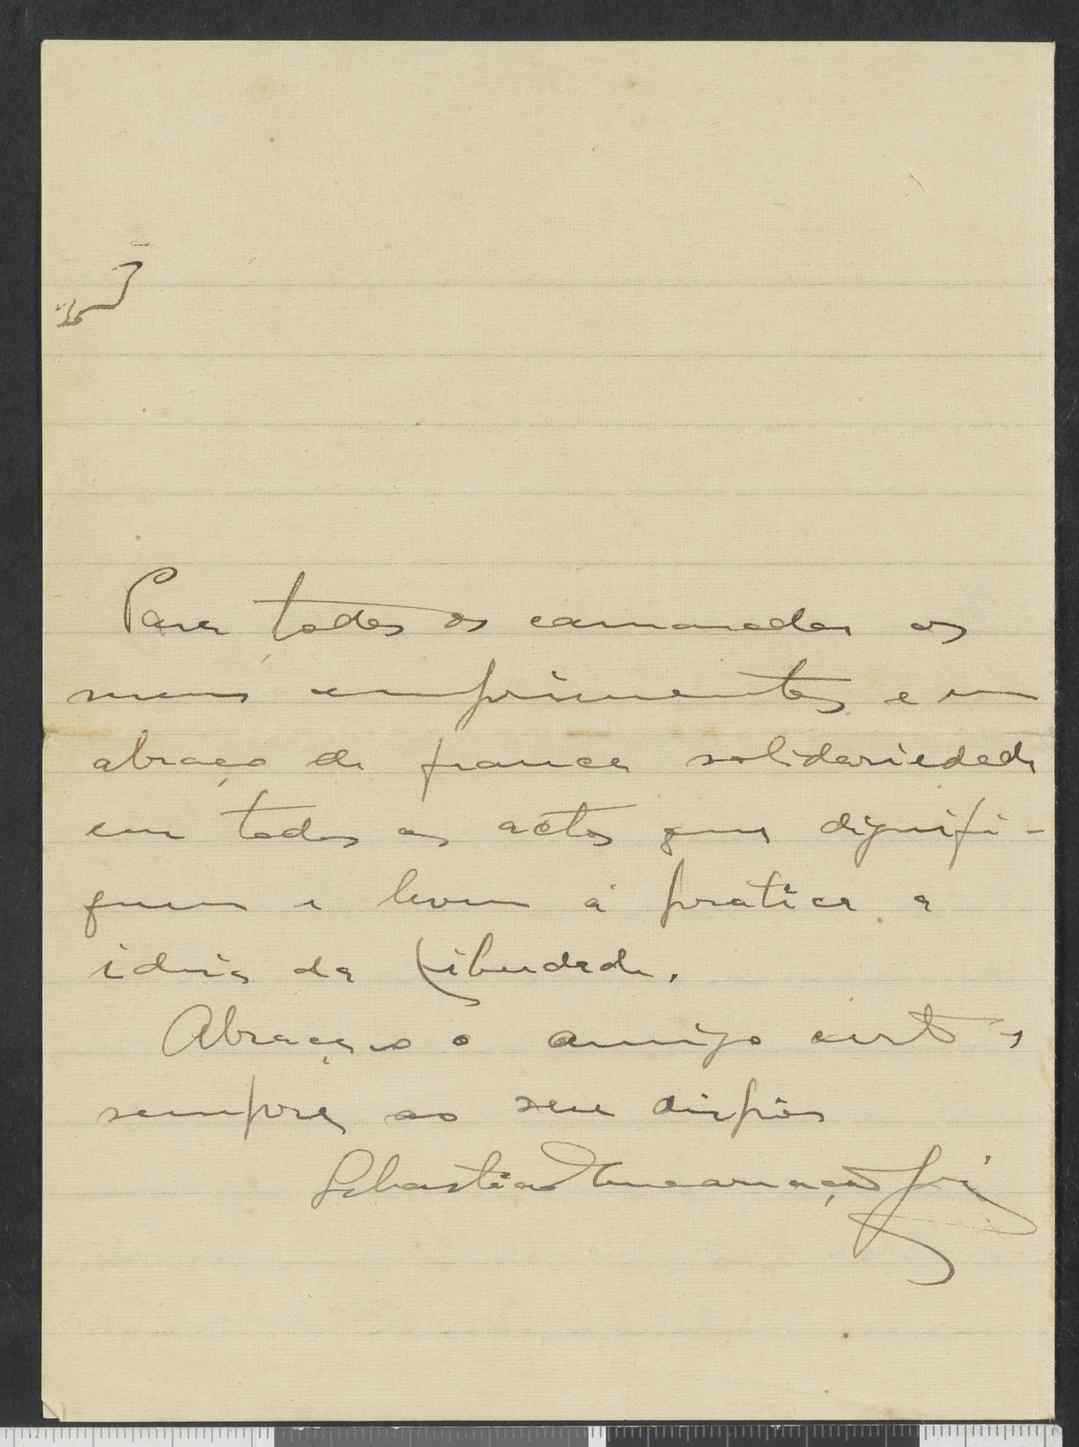 Para todos os camaradas os
meus cumprimentos e um
abraço de franca solidariedade
em todos os actos que dignifi-
quem e levem á pratica a
ideia da Liberdade.
Abraça-o o amigo certo,
sempre ao seu dispôr
Sebastião Encarnação